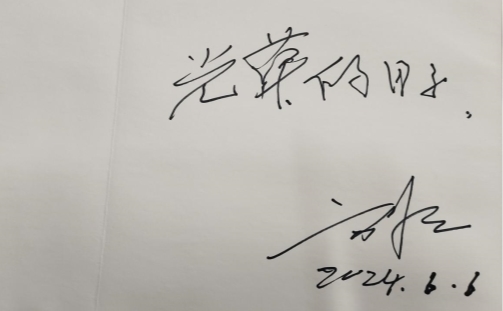 光荣的日子.
2024.6.6